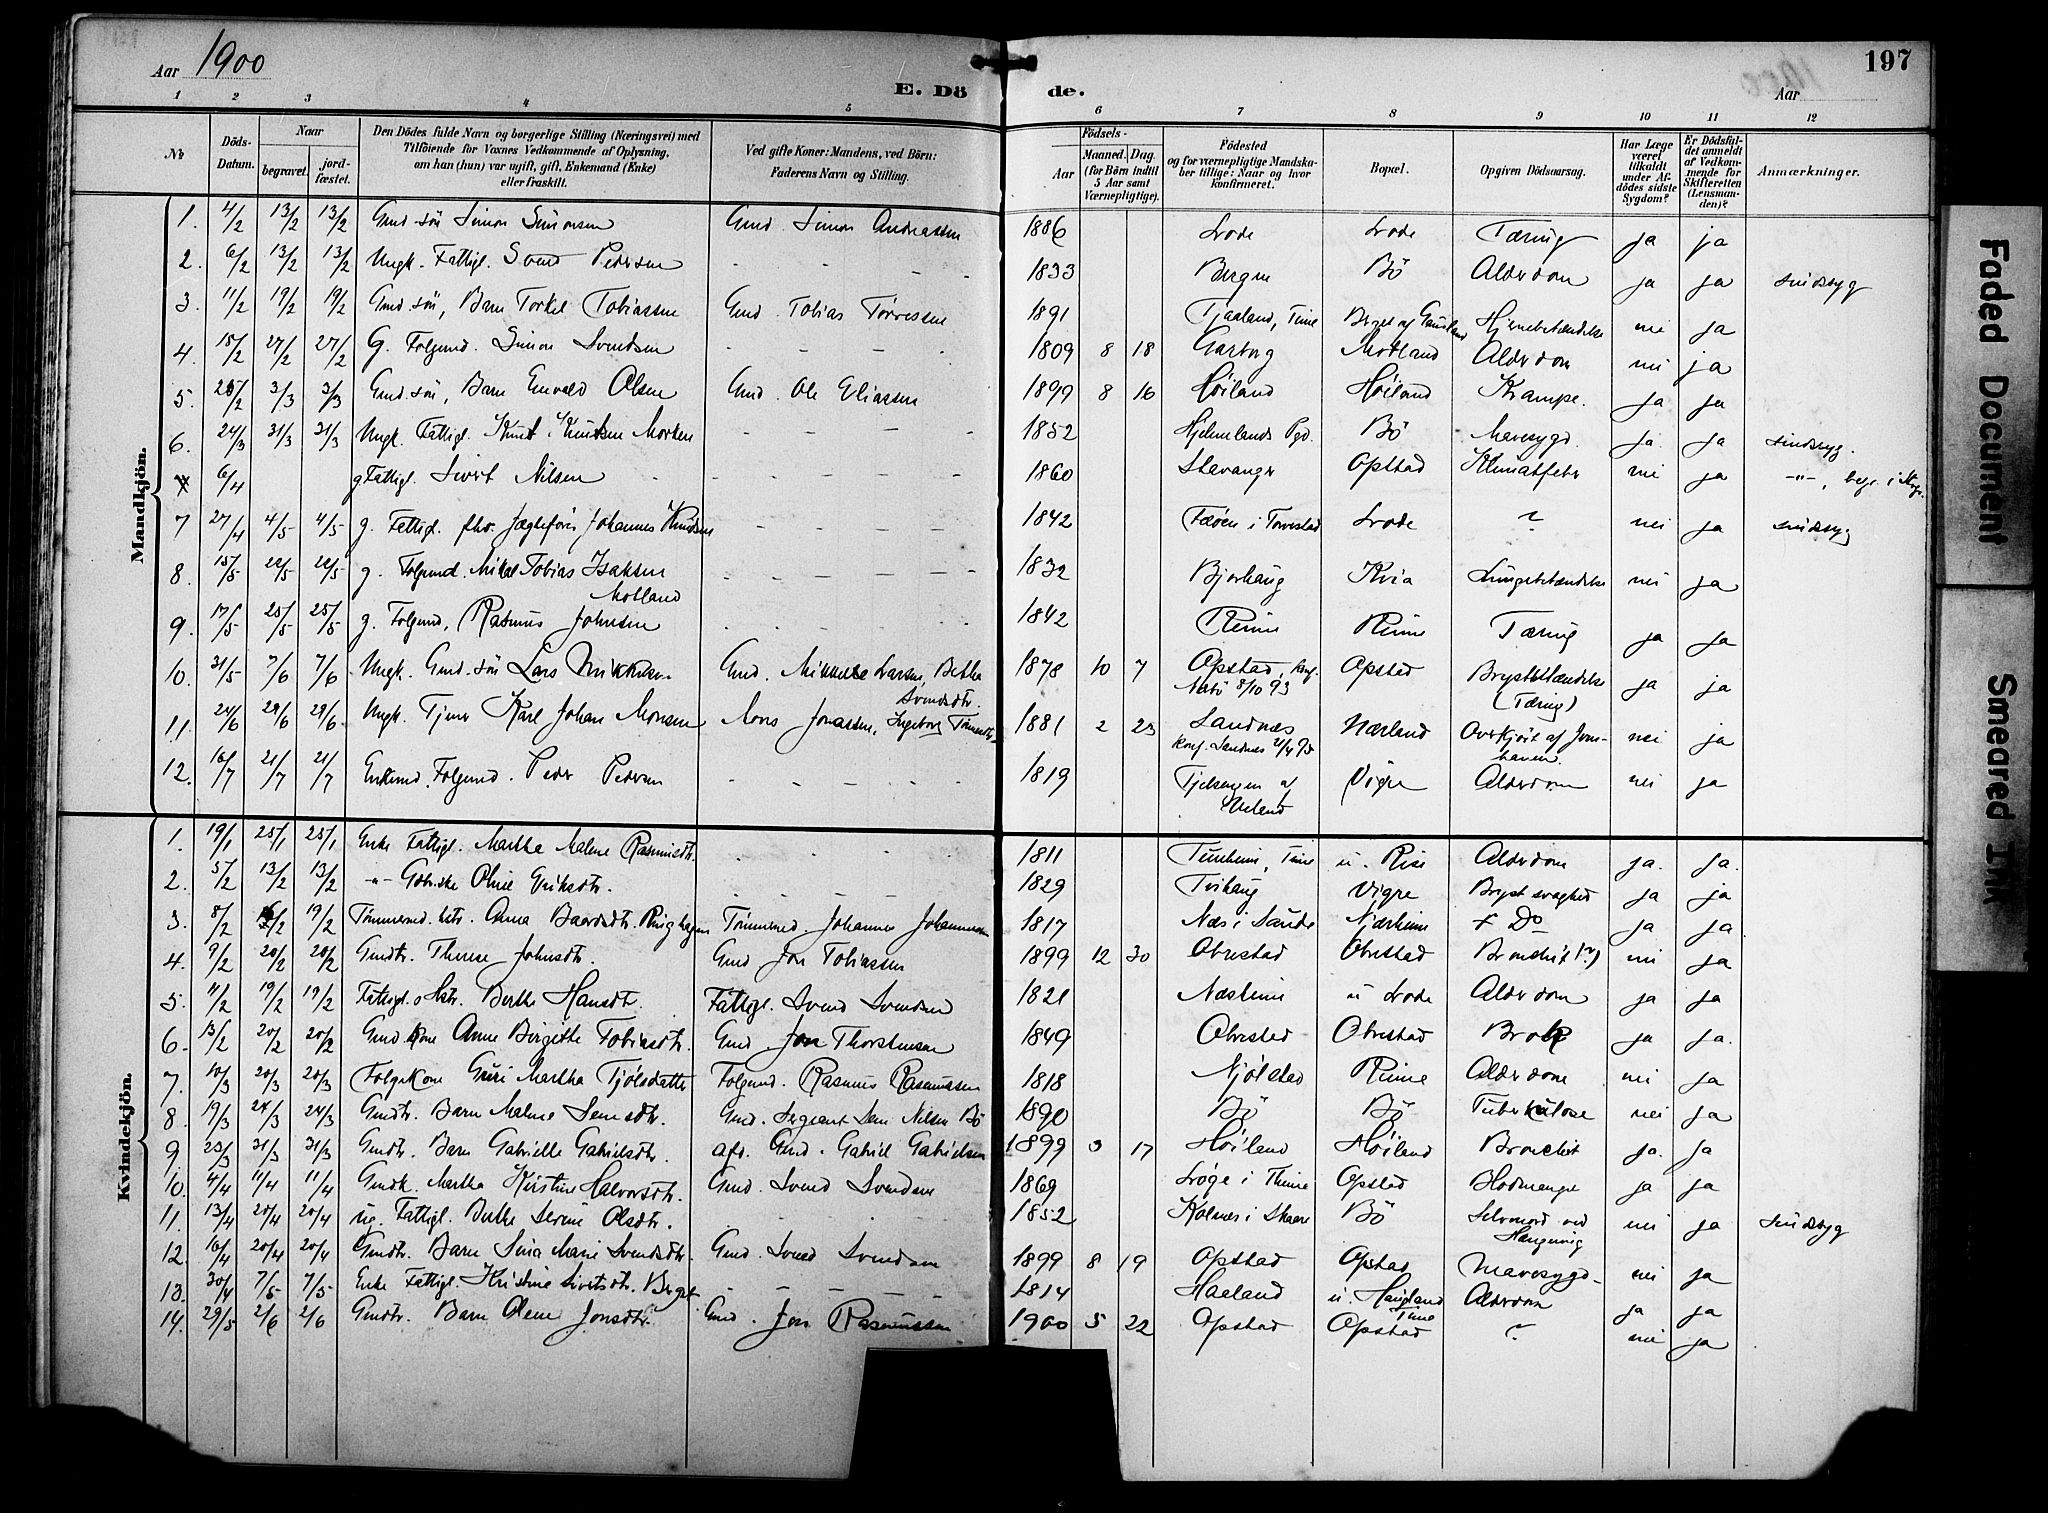 Aar 1900
E. Dö
de.
Aar
197
1 2 3 4 5 6 7 8 9 10 11 12
No
Döds-Datum.
Naar
begravet.
jord-fæstet.
Den Dödes fulde Navn og borgerlige Stilling (Næringsvei) med
Tilföiende for Voxnes Vedkommende af Oplysning,
om han (hun) var ugift, gift, Enkemand (Enke)
eller fraskilt.
Ved gifte Koner: Mandens, ved Börn:
Faderens Navn og Stilling.
Födsels-
Aar
Maaned. Dag.
(for Börn indtil
5 Aar samt
Værnepligtige).
Födested
og for værnepligtige Mandska-
ber tillige: Naar og hvor
konfirmeret.
Bopæl.
Opgiven Dödsaarsag.
Har Læge
været
tilkaldt
under Af-
dödes sidste
Sygdom?
Er Dödsfal-
det anmeldt
af Vedkom-
mende for
Skifteretten
(Lensman-
den)?
Anmærkninger.
Mandkjön.
1. 4/2 13/2 13/2 Gmd sön Simon Simonsen Gmd. Simon Andreassen 1886 Lode Lode Tæring ja ja
2. 6/2 13/2 13/2 Ungk. Fattigl. Svend Pedersen - - - - 1833 Bergen Bö Alderdom ja ja sindssyg
3. 11/2 19/2 19/2 Gmd sön, Barn Torkel Tobiassen Gmd. Tobias Torressen 1891 Tjaaland, Time Berget af Hjernebetændelse nei ja
4. 18/2 27/2 27/2 G. Folgmd. Simon Svendsen - - - - 1809 8 18 Garborg Motland Alderdom nei ja
5. 3/3 3/3 Gmd. sön, Barn Enevald Olsen Gmd. Ole Eliassen 1899 8 16 Höiland Höiland Krampe. ja ja
6. 24/3 31/3 31/3 Ungk. Fattigl. Knut Knutsen - - - - 1852 Hjelmelands Pgd. Bö Mavesygd. ja. ja sindssyg.
7 6/4 g Fattigl. Sivert Nilsen - - - - 1860 Stavanger Opstad Klimatfeber nei ja -"-, begr. i
7 27/4 4/5 4/5 g. Fattigl. fhv. Johannes Knudsen - - - - 1842 Torvestad Lode ? nei ja sindssyg
8. 15/5 22/5 22/5 g. Folgmd. Mikal Tobias Isaksen - - - - 1832 Bjorhaug Kvia Lungebetændelse nei ja
Motland
9. 17/5 25/5 25/5 g. Folgmd, Rasmus Johnsen - - - - 1842 Rime Rime Tæring ja ja
10. 31/5 7/6 7/6 Ungk. Gmd. sön Lars Mikkelsen Gmd. Mikkel Larsen, Betha 1878 10 7 Opstad, konf. Opstad Brystbetændelse ja ja
Svendsdtr. Næbö 8/10 93 (Tæring)
11. 24/6 29/6 29/6 Ungk. Tjener Karl Johan Monsen Mons Jonassen, Ingeborg 1881 2 23 Sandnæs Nærland Overkjört af Jern- nei ja
konf. Sandnes banen.
12. 16/7 21/7 21/7 Enkemd. Folgmd. Peder Pedersen - - - - 1819 af Vigre Alderdom nei ja
Kvindekjön.
1. 19/1 25/1 25/1 Enke Fattigl. Martha Malene Rasmusdtr. - - - - 1811 Tunheim, Time u. Rise Alderdom ja. ja.
2. 5/2 13/2 13/2 -"- Oline Eriksdtr. - - - - 1829 Tvihaug Vigre Brystsvaghed ja ja
3. 8/2 19/2 Tömmermd. Anna Baardsdtr. Tömmermd. Johannes Johannessen 1817 Næs i Sande Njærheim Do ja ja.
4. 9/2 20/2 20/2 Gmdtr. Therese Johnsdtr. Gmd Jon Tobiassen 1899 12 30 Obrestad Obrestad Bronchit (?) nei ja
5. 11/2 19/2 19/2 Fattigl. Hstr. Berthe Hansdtr. Fattigl. Svend Svendsen 1821 Næsheim u Lode Alderdom ja ja
6. 13/2 20/2 20/2 Gmd kone Anne Birgitte Tobiasdtr. Gmd. Jon Thorstensen 1849 Obrestad Obrestad Brok ja ja.
7. 10/3 20/3 20/3 Folgekone Guri Martha Tjölsdatter Folgmd. Rasmus Rasmussen 1818 Njölstad Rime Alderdom nei ja
8. 19/3 24/3 24/3 Gmdtr. Barn Malene Semsdtr. Gmd. Sergeant Sem Nilsen Bö 1890 Bö Bö Tuberkulose nei ja
9 23/3 31/3 31/3 Gmdtr. Barn Gabrielle Gabrielsdtr. afd. Gmd. Gabriel Gabrielsen 1899 3 17 Höiland Höiland Bronchit ja. ja
10. 4/4 11/4 11/4 Gmdk. Martha Kirstine Halvorsdtr. Gmd. Svend Svendsen 1869 Lröge i Thime Opstad Blodmangel ja ja
11. 13/4 20/4 20/4 ug. Fattigl. Berthe Serine Olsdtr. - - - - 1852 Kolnes i Skaare Bö Selvmord ved nei ja sindssyg
Hængning
12. 16/4 20/4 20/4 Gmdtr. Barn Sina Marie Svendsdtr. Gmd. Svend Svendsen 1899 8 19 Opstad Opstad Mavesygd. nei ja
13. 30/4 7/5 7/5 Enke Fattigl. Kristine Sivertsdtr. Berget - - - - 1814 Haaland u. Haugland Alderdom ja ja
Time
14. 29/5 2/6 2/6 Gmdtr. Barn Olene Jonsdtr. Gmd. Jon Rasmussen 1900 5 22 Opstad Opstad ? nei ja
Faded Document
Smeared Ink